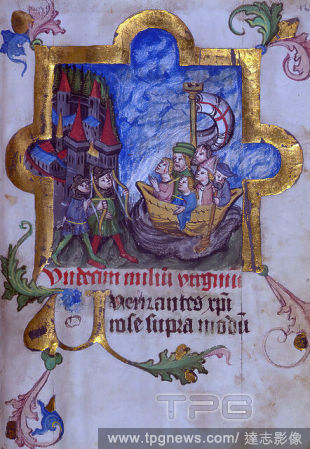 Vndecim miliū virginū
Vernantes xpi
rose supra modū
TPG
www.tpgnews.com/ 達志影像